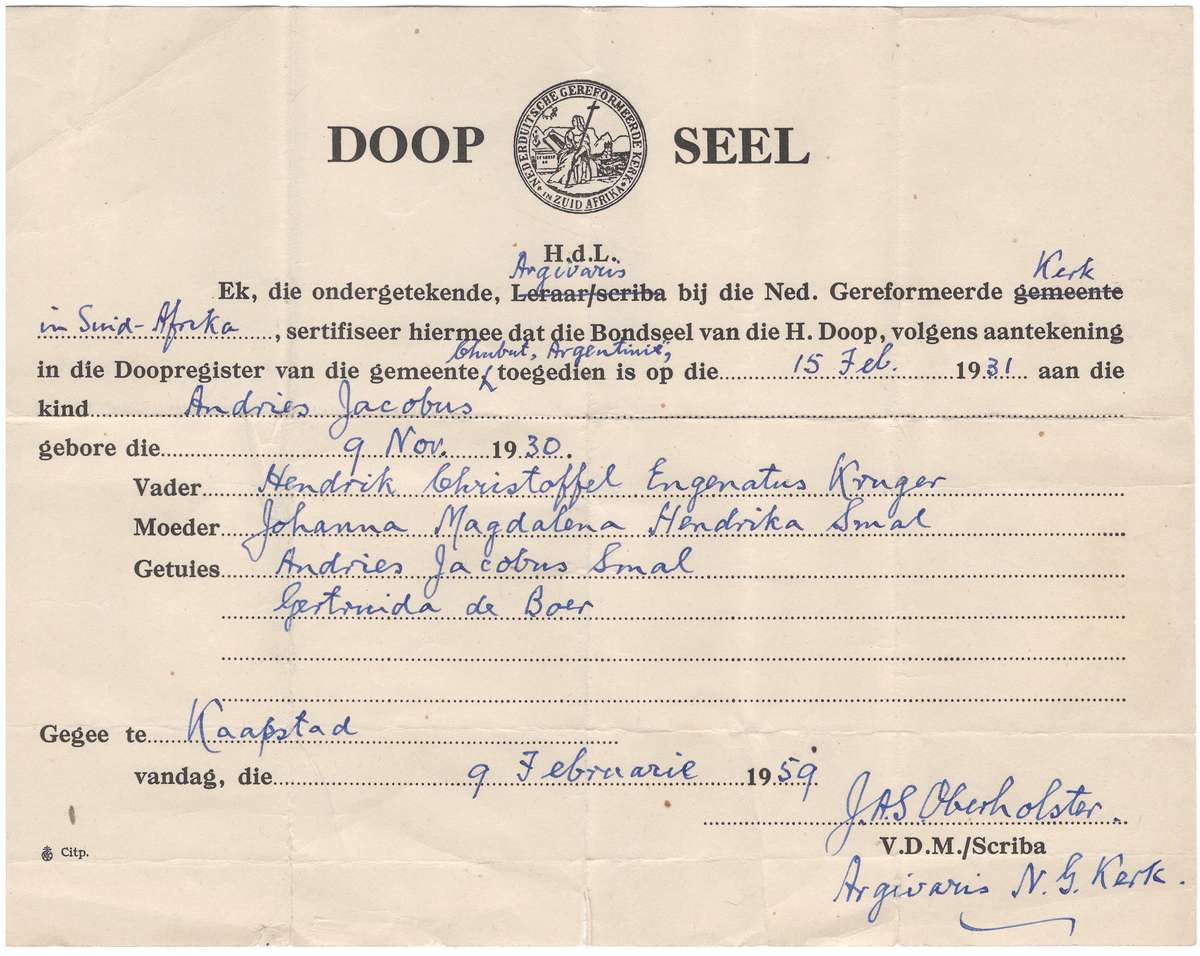 DOOP SEEL
NEDERDUITSCHE GEREFORMEERDE KERK
IN ZUID AFRIKA
H.d.L.
Argivaris Kerk
Ek, die ondergetekende, Leraar/scriba bij die Ned. Gereformeerde gemeente
in Suid-Afrika, sertifiseer hiermee dat die Bondseel van die H. Doop, volgens aantekening
Chubut, Argentinië,
in die Doopregister van die gemeente toegedien is op die 15 Feb. 1931 aan die
kind Andries Jacobus
gebore die 9 Nov. 1930.
Vader Hendrik Christoffel Engenatus Kruger
Moeder Johanna Magdalena Hendrika Smal
Getuies Andries Jacobus Smal
Gertruida de Boer
Gegee te Kaapstad
vandag, die 9 Februarie 1959
J.A.S Oberholster.
V.D.M./Scriba
Argivaris N.G. Kerk.
Citp.